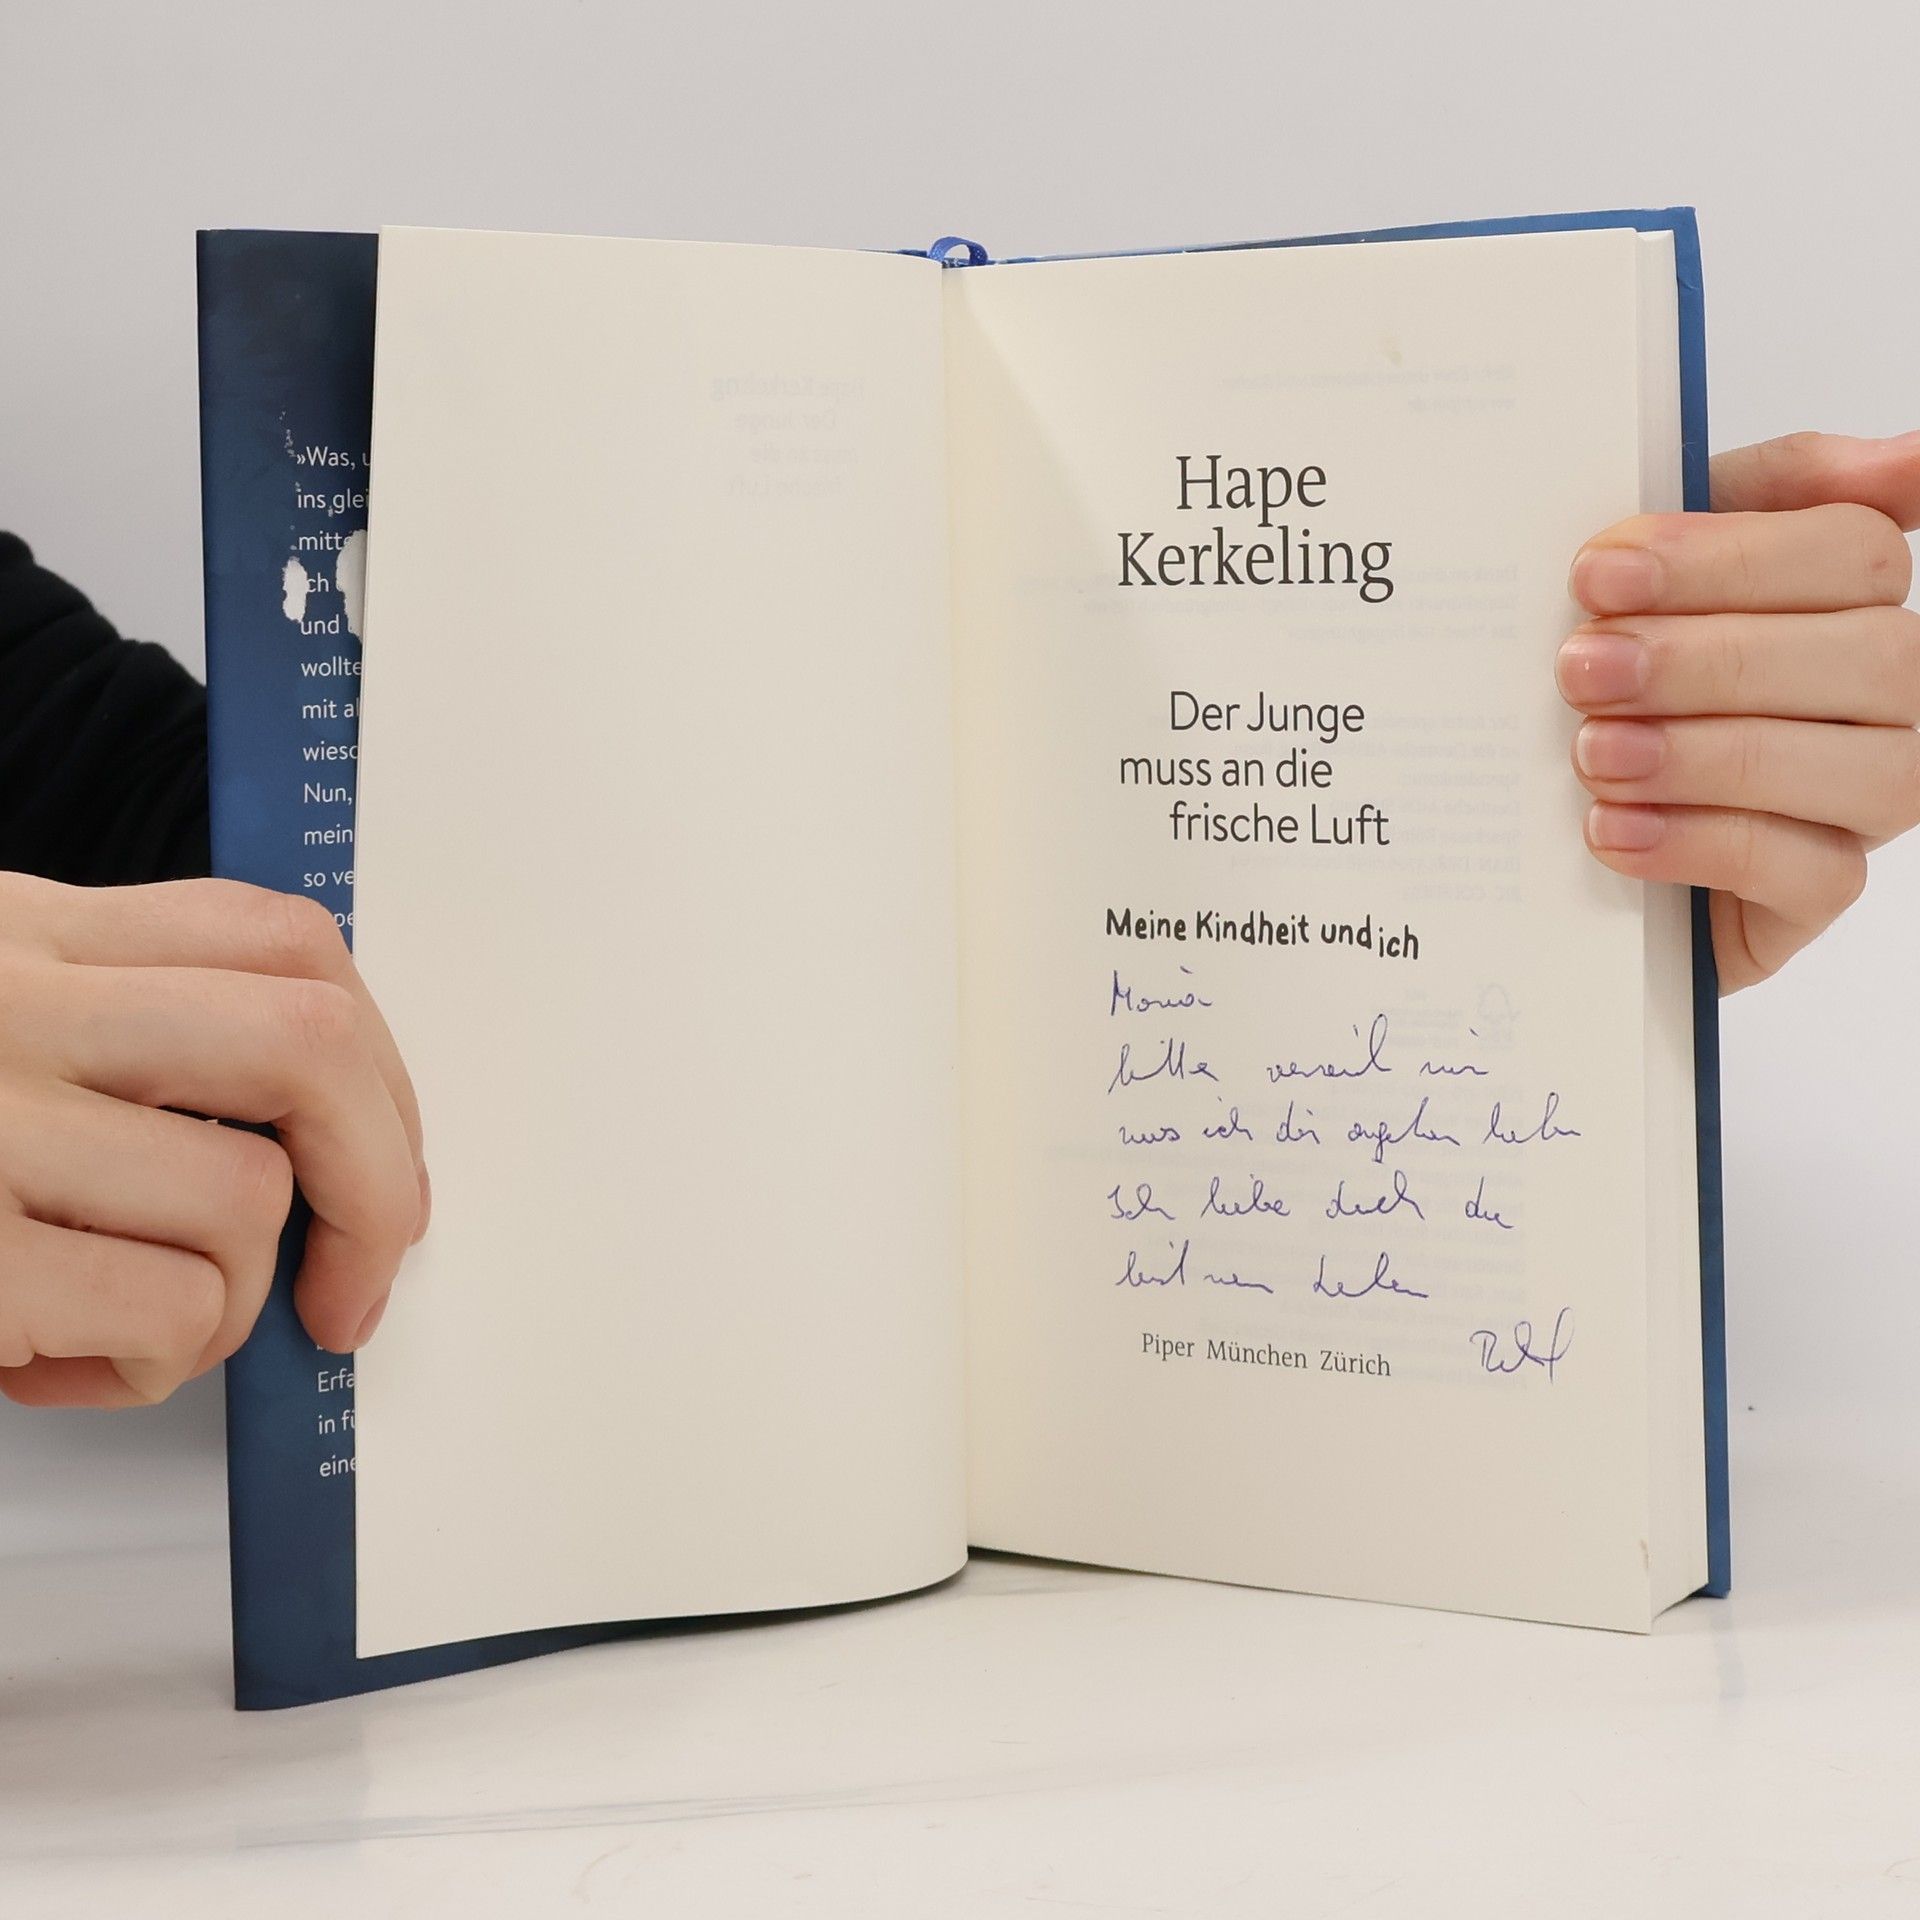 »Was, u
ins glei
mitte
ch
und
wollte
mit al
wiesc
Nun,
mein
so ve
pe
Erfa
in fü
eine
Hape
Kerkeling
Der Junge
muss an die
frische Luft
Meine Kindheit und ich
Maria
bitte verzeih mir
was ich dir angetan habe
Ich liebe dich du
bist mein Leben
Piper München Zürich